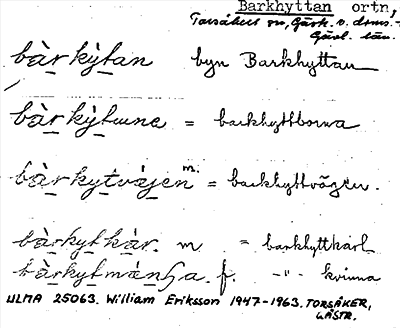 Barkhyttan ortn,
Torsåkers sn, Gästr. v. doms.-
Gävl. län.
bàrky̆tan byn Barkhyttan
bàrky̆tɯne = barkhyttborna
bàrkytvägen m. = barkhyttvägen.
bàrkytkàr. m = barkhyttkarl
f. -"- kvinna
ULMA 25063. William Eriksson 1947-1963. TORSÅKER,
GÄSTR.